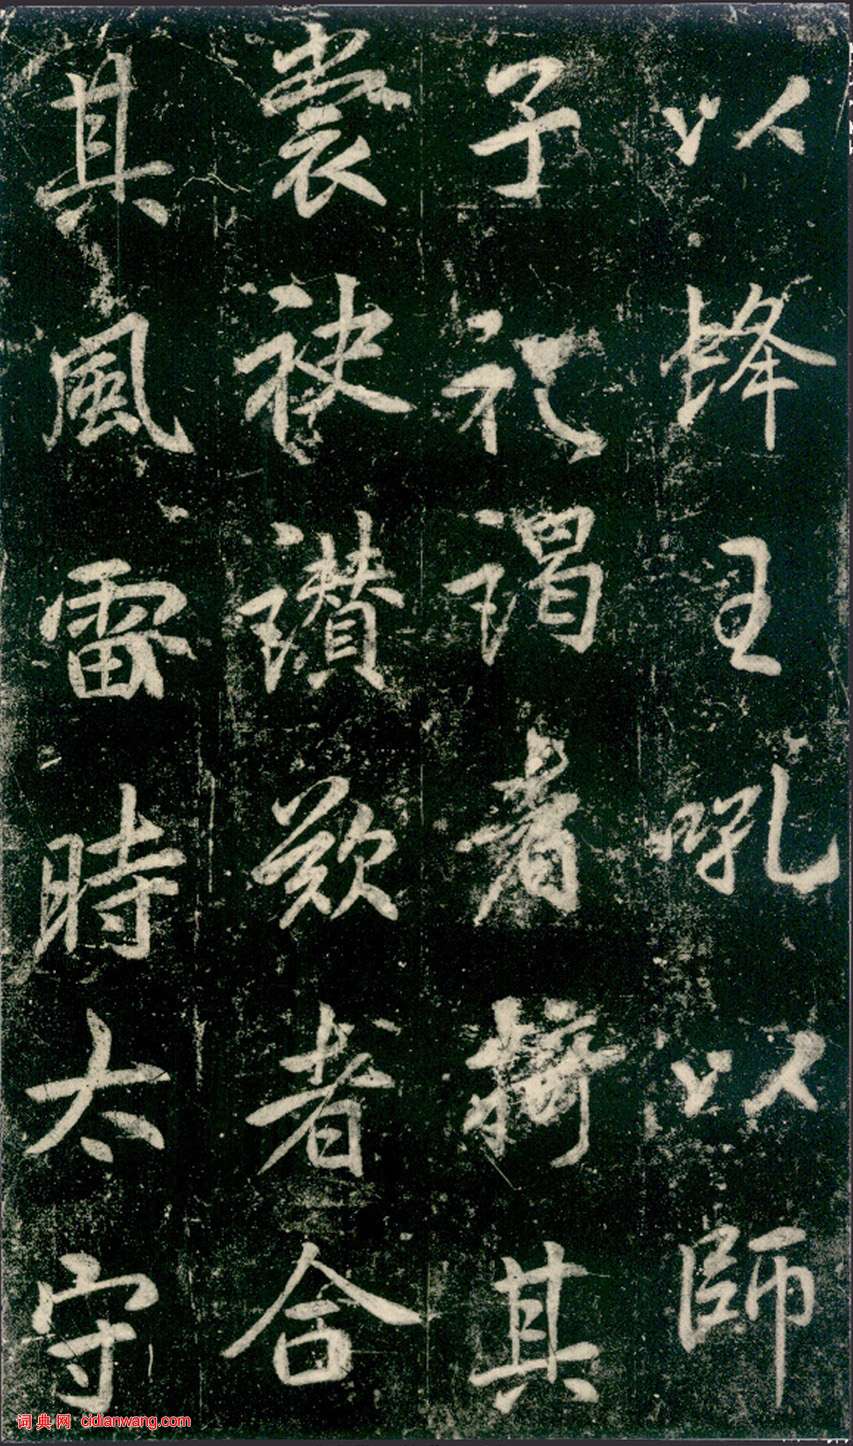 以蜂王吼以師
子禮謁者擠其
裳袂讚歎者合
其風雷時太守
词典网 cidianwang.com